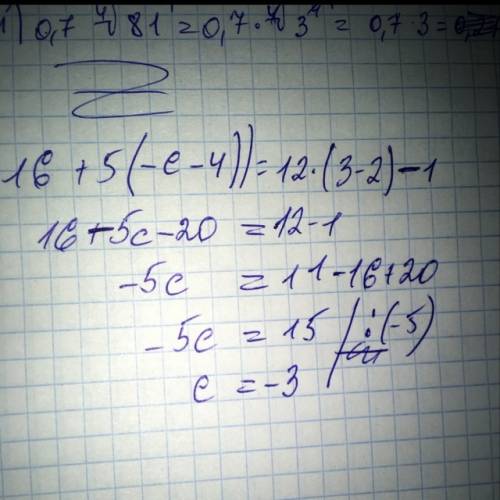 1) 0,7 ∜81 = 0,7 · ∜3⁴ = 0,7 · 3 =
16 + 5(-c-4)) = 12·(3-2)-1
16-5c-20 = 12-1
-5c = 11-16+20
-5c = 15 /:(-5)
c = -3